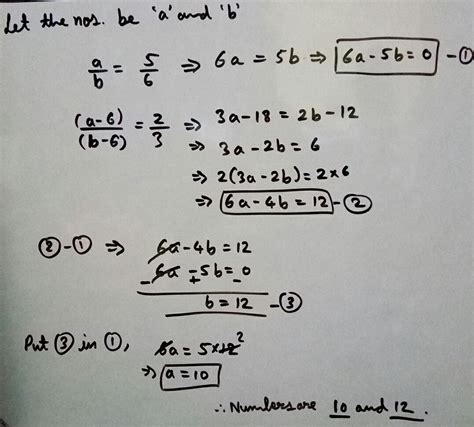 Let the nos. be 'a' and 'b'
a/b = 5/6 ⇒ 6a = 5b ⇒ 6a-5b=0 -①
(a-6)/(b-6) = 2/3 ⇒ 3a-18 = 2b-12
⇒ 3a-2b=6
⇒ 2(3a-2b)=2×6
⇒ 6a-4b=12 -②
②-① ⇒ 6a-4b=12
6a-5b=0
- + -
b=12 -③
Put ③ in ①, 6a = 5×12 2
⇒ a=10
∴ Numbers are 10 and 12.